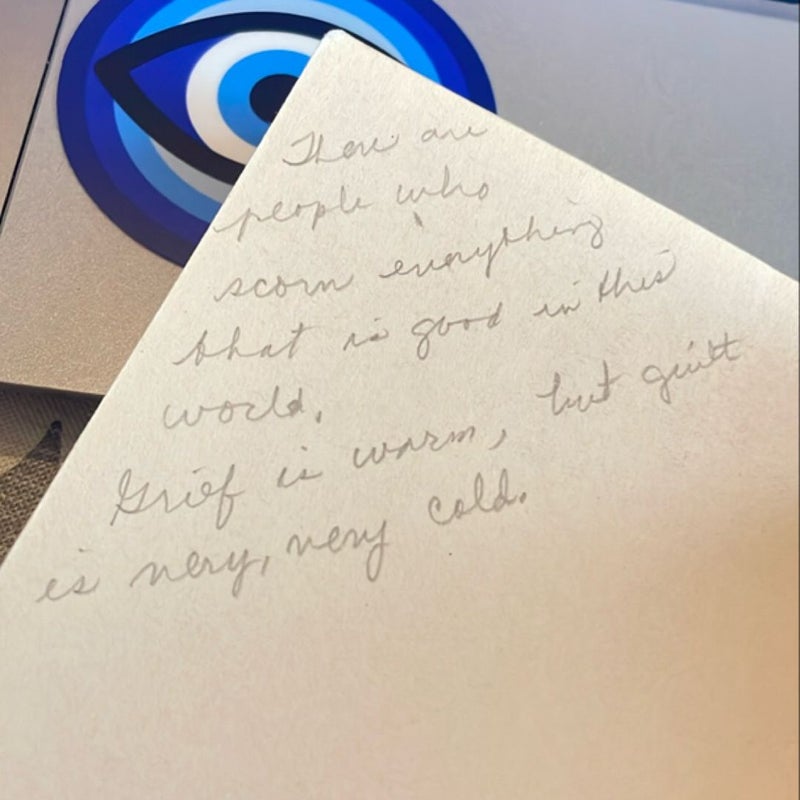 There are
people who
scorn everything
that is good in this
world.
Grief is warm, but guilt
is very, very cold.